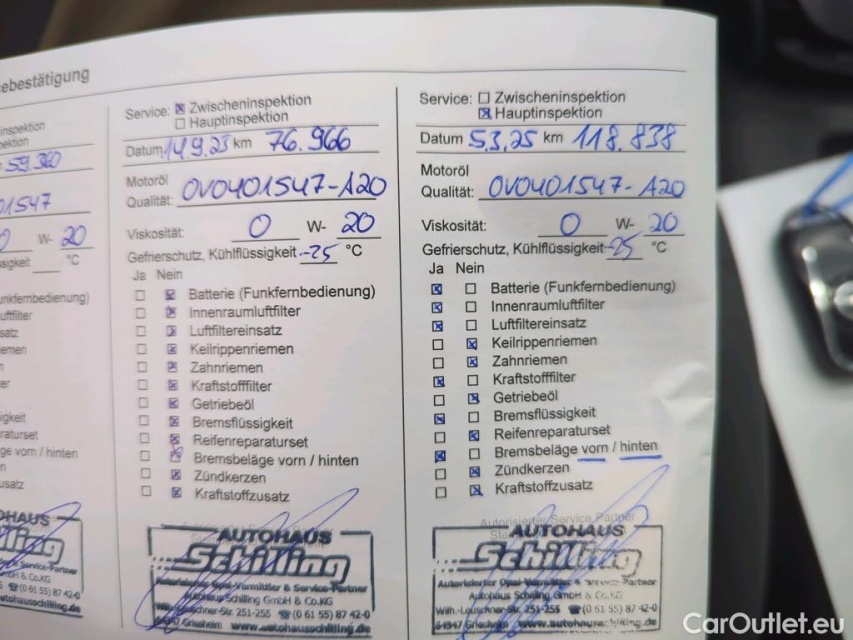 ebestätigung
nspektion
ektion
59.360
01547
W- 20
sigkeit °C
nkfernbedienung)
tfilter
satz
emen
er
gkeit
araturset
ge vorn / hinten
n
usatz
OHAUS
& Service-Partner
bH & Co.KG
☎(0 61 55) 87 42-0
tohausschilling.de
Service: ☒ Zwischeninspektion
☐ Hauptinspektion
Datum 14.9.23 km 76.966
Motoröl
Qualität: OVO401547-A20
Viskosität: 0 W- 20
Gefrierschutz, Kühlflüssigkeit -25 °C
Ja Nein
☐ ☒ Batterie (Funkfernbedienung)
☐ ☒ Innenraumluftfilter
☐ ☒ Luftfiltereinsatz
☐ ☒ Keilrippenriemen
☐ ☒ Zahnriemen
☐ ☒ Kraftstofffilter
☐ ☒ Getriebeöl
☐ ☒ Bremsflüssigkeit
☐ ☒ Reifenreparaturset
☐ ☒ Bremsbeläge vorn / hinten
☐ ☒ Zündkerzen
☐ ☒ Kraftstoffzusatz
AUTOHAUS
Schilling
Autorisierter Opel-Vermittler & Service-Partner
Autohaus Schilling GmbH & Co.KG
Wilh.-Leuschner-Str. 251-255 ☎(0 61 55) 87 42-0
64347 Griesheim www.autohausschilling.de
Service: ☐ Zwischeninspektion
☒ Hauptinspektion
Datum 5.3.25 km 118.838
Motoröl
Qualität: OVO401547-A20
Viskosität: 0 W- 20
Gefrierschutz, Kühlflüssigkeit -25 °C
Ja Nein
☒ ☐ Batterie (Funkfernbedienung)
☒ ☐ Innenraumluftfilter
☒ ☐ Luftfiltereinsatz
☐ ☒ Keilrippenriemen
☐ ☒ Zahnriemen
☒ ☐ Kraftstofffilter
☐ ☒ Getriebeöl
☒ ☐ Bremsflüssigkeit
☐ ☒ Reifenreparaturset
☒ ☐ Bremsbeläge vorn / hinten
☐ ☒ Zündkerzen
☐ ☒ Kraftstoffzusatz
Autorisierter Service Partner
AUTOHAUS
Schilling
Autorisierter Opel-Vermittler & Service-Partner
Autohaus Schilling GmbH & Co.KG
Wilh.-Leuschner-Str. 251-255 ☎(0 61 55) 87 42-0
64347 Griesheim www.autohausschilling.de
CarOutlet.eu